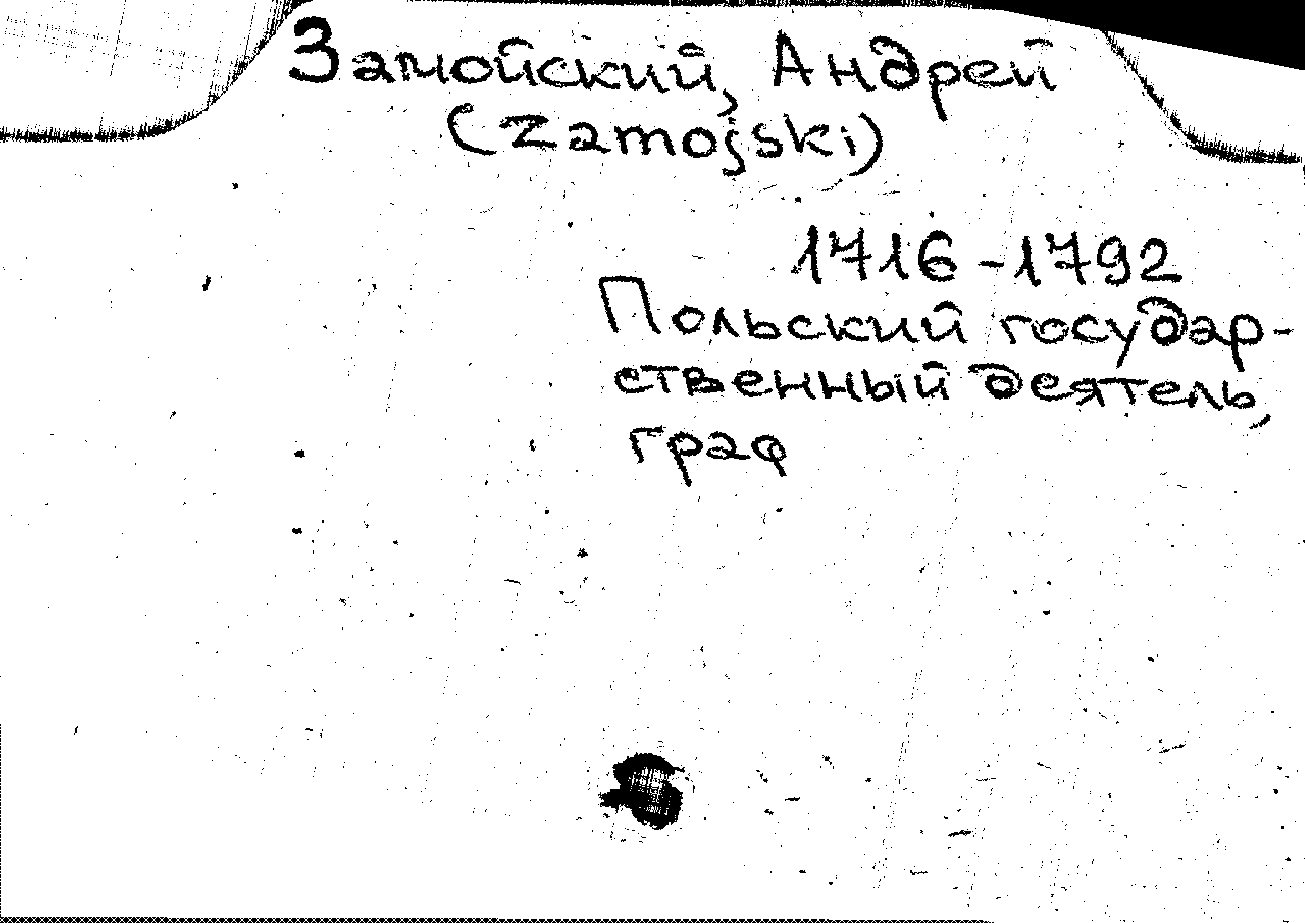 Замойский, Андрей
(Zamojski)
1716-1792
Польский государ-
ственный деятель,
граф